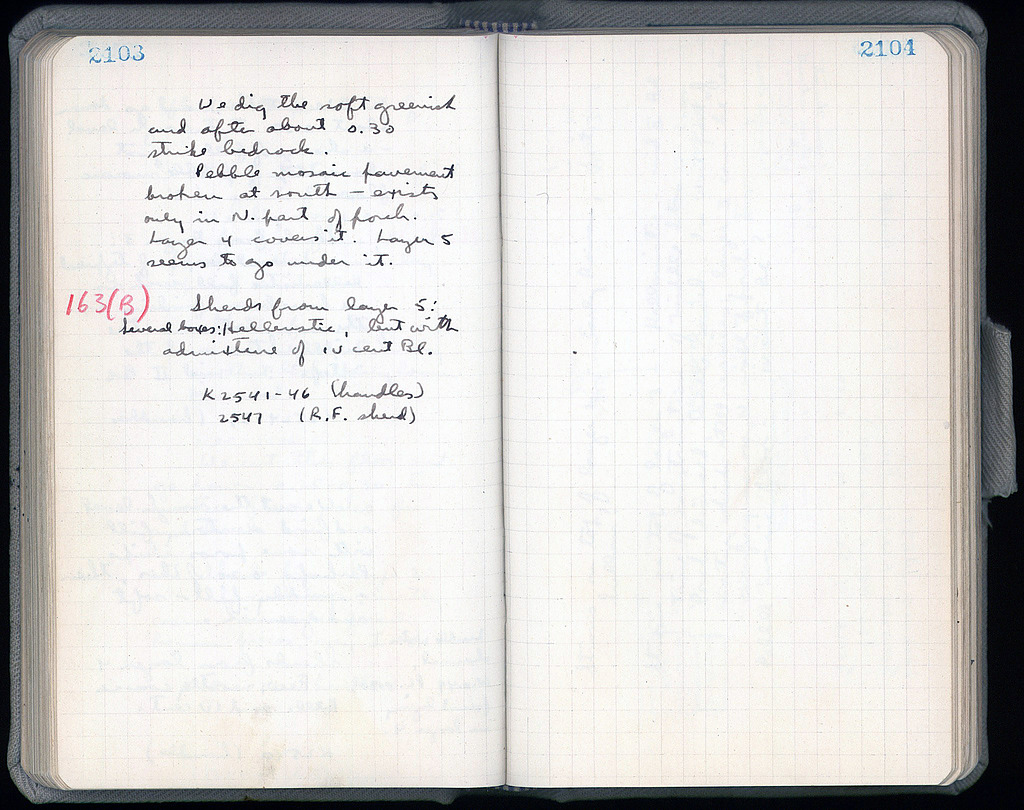 2103
We dig the soft greenish
and after about 0.30
strike bedrock.
Pebble mosaic pavement
broken at south – exists
only in N. part of porch.
Layer 4 covers it. Layer 5
seems to go under it.
163(B) Sherds from layer 5:
Several boxes: Hellenistic, but with
admixture of iv cent BC.
K2541-46 (handles)
2547 (R.F. sherd)
2104